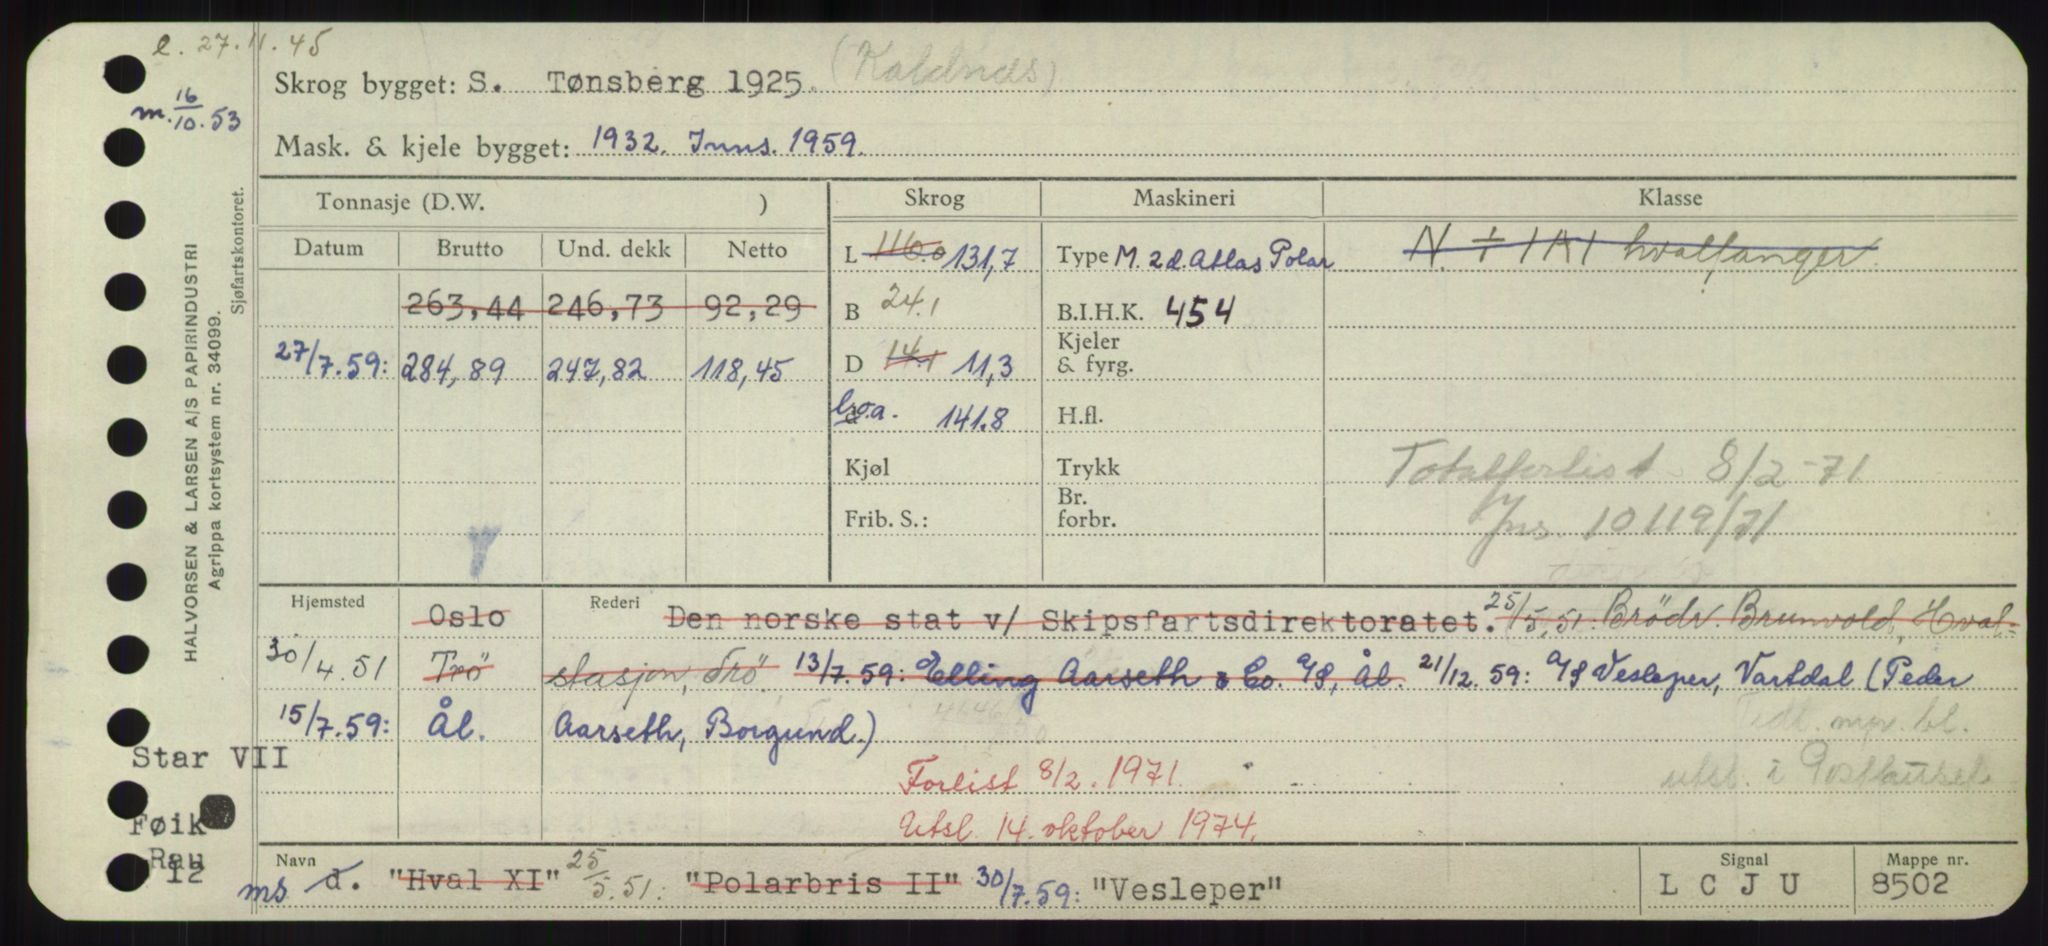 e. 27.11.45
m. 16/10.53
Skrog bygget: S. Tønsberg 1925. (Kaldnæs)
Mask. & kjele bygget: 1932. Inns. 1959.
HALVORSEN & LARSEN A/S PAPIRINDUSTRI
Agrippa kortsystem nr. 34099.
Sjøfartskontoret.
Tonnasje (D.W. ) Skrog Maskineri Klasse
Datum Brutto Und. dekk Netto L 116.0 131,7 Type M. 2 d. Atlas Polar N. ÷ 1A1 hvalfanger
263,44 246,73 92,29 B 24.1 B.I.H.K. 454
27/7.59: 284,89 247,82 118,45 D 14.1 11,3 Kjeler & fyrg.
l.o.a. 141.8 H.fl.
Kjøl Trykk Totalforlist 8/2-71
Frib. S.: Br. forbr. Jns. 10119/71
Hjemsted Oslo Rederi Den norske stat v/ Skipsfartsdirektoratet. 25/5.51: Brödr. Brunvold, Hval-
30/4.51 Trö stasjon, Trö 13/7.59: Elling Aarseth & Co. A/S, Ål. 21/12.59: A/S Vesleper, Vartdal (Peder
15/7.59: Ål. Aarseth, Borgund.) Tidl. mpr. bl.
Star VII Forlist 8/2.1971. utsl. i
Føik Utsl. 14. oktober 1974.
Rau
12
Navn ms d. "Hval XI" 25/5.51: "Polarbris II" 30/7.59: "Vesleper" Signal L C J U Mappe nr. 8502